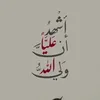 أشهد
أن
عليًّا
ولي
الله